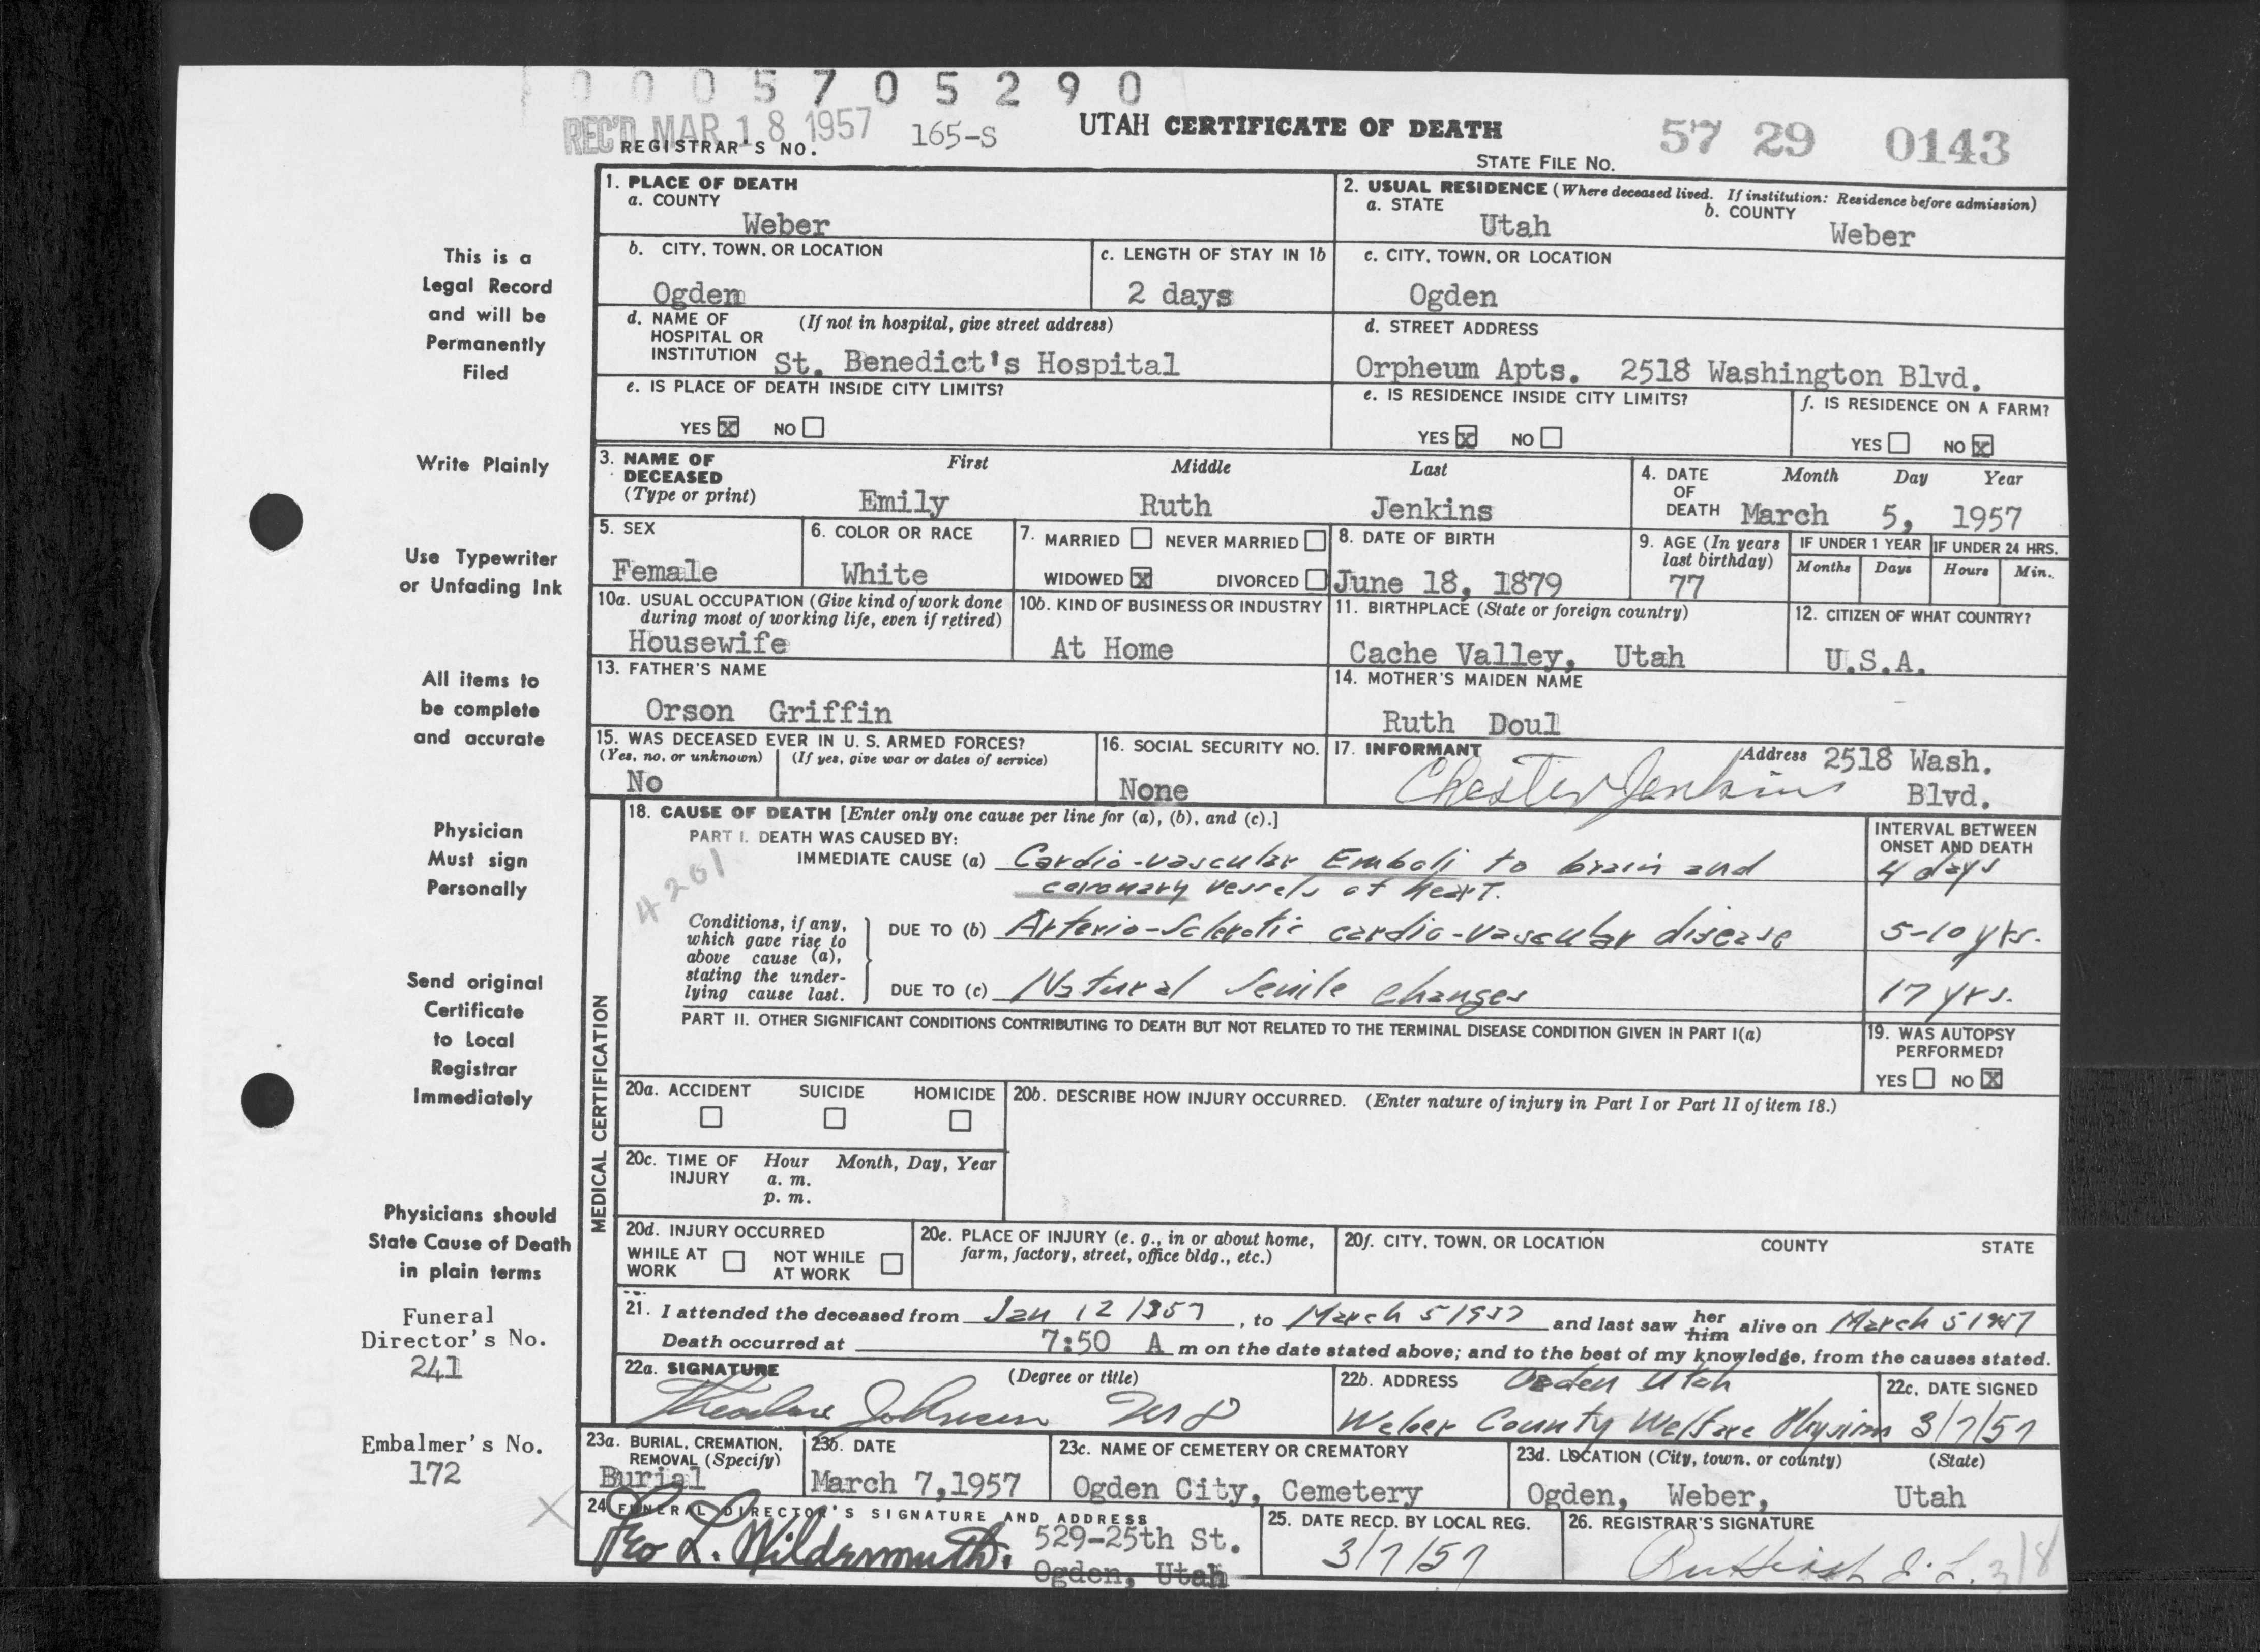 0005705290
REC'D MAR 18 1957 165-S UTAH CERTIFICATE OF DEATH 57 29 0143
REGISTRAR'S NO.
STATE FILE NO.
1. PLACE OF DEATH
a. COUNTY
Weber
2. USUAL RESIDENCE (Where deceased lived. If institution: Residence before admission)
a. STATE
Utah
b. COUNTY
Weber
b. CITY, TOWN, OR LOCATION
Ogden
c. LENGTH OF STAY IN 1b
2 days
c. CITY, TOWN, OR LOCATION
Ogden
d. NAME OF (If not in hospital, give street address)
HOSPITAL OR
INSTITUTION St. Benedict's Hospital
d. STREET ADDRESS
Orpheum Apts. 2518 Washington Blvd.
e. IS PLACE OF DEATH INSIDE CITY LIMITS?
YES X NO
e. IS RESIDENCE INSIDE CITY LIMITS?
YES X NO
f. IS RESIDENCE ON A FARM?
YES NO X
3. NAME OF First Middle Last
DECEASED
(Type or print) Emily Ruth Jenkins
4. DATE Month Day Year
OF
DEATH March 5, 1957
5. SEX
Female
6. COLOR OR RACE
White
7. MARRIED NEVER MARRIED
WIDOWED X DIVORCED
8. DATE OF BIRTH
June 18, 1879
9. AGE (In years
last birthday)
77
IF UNDER 1 YEAR
Months Days
IF UNDER 24 HRS.
Hours Min.
10a. USUAL OCCUPATION (Give kind of work done
during most of working life, even if retired)
Housewife
10b. KIND OF BUSINESS OR INDUSTRY
At Home
11. BIRTHPLACE (State or foreign country)
Cache Valley, Utah
12. CITIZEN OF WHAT COUNTRY?
U.S.A.
13. FATHER'S NAME
Orson Griffin
14. MOTHER'S MAIDEN NAME
Ruth Doul
15. WAS DECEASED EVER IN U. S. ARMED FORCES?
(Yes, no, or unknown) (If yes, give war or dates of service)
No
16. SOCIAL SECURITY NO.
None
17. INFORMANT Address 2518 Wash.
Chester Jenkins Blvd.
MEDICAL CERTIFICATION
18. CAUSE OF DEATH [Enter only one cause per line for (a), (b), and (c).]
PART I. DEATH WAS CAUSED BY:
INTERVAL BETWEEN
ONSET AND DEATH
4201
IMMEDIATE CAUSE (a) Cardio-vascular Emboli to brain and 4 days
coronary vessels of heart.
Conditions, if any,
which gave rise to
above cause (a),
stating the under-
lying cause last.
DUE TO (b) Arterio-Sclerotic cardio-vascular disease 5-10 yrs.
DUE TO (c) Natural Senile changes 17 yrs.
PART II. OTHER SIGNIFICANT CONDITIONS CONTRIBUTING TO DEATH BUT NOT RELATED TO THE TERMINAL DISEASE CONDITION GIVEN IN PART I(a)
19. WAS AUTOPSY
PERFORMED?
YES NO X
20a. ACCIDENT SUICIDE HOMICIDE
20b. DESCRIBE HOW INJURY OCCURRED. (Enter nature of injury in Part I or Part II of item 18.)
20c. TIME OF Hour Month, Day, Year
INJURY a. m.
p. m.
20d. INJURY OCCURRED
WHILE AT NOT WHILE
WORK AT WORK
20e. PLACE OF INJURY (e. g., in or about home,
farm, factory, street, office bldg., etc.)
20f. CITY, TOWN, OR LOCATION COUNTY STATE
21. I attended the deceased from Jan 12 1957, to March 5 1957 and last saw her him alive on March 5 1957
Death occurred at 7:50 A m on the date stated above; and to the best of my knowledge, from the causes stated.
22a. SIGNATURE (Degree or title)
Theodore Johnson MD
22b. ADDRESS Ogden Utah
Weber County Welfare Physician
22c. DATE SIGNED
3/7/57
23a. BURIAL, CREMATION,
REMOVAL (Specify)
Burial
23b. DATE
March 7, 1957
23c. NAME OF CEMETERY OR CREMATORY
Ogden City, Cemetery
23d. LOCATION (City, town, or county) (State)
Ogden, Weber, Utah
24 FUNERAL DIRECTOR'S SIGNATURE AND ADDRESS
Leo L. Wildermuth. 529-25th St.
Ogden, Utah
25. DATE RECD. BY LOCAL REG.
3/7/57
26. REGISTRAR'S SIGNATURE
3/8
This is a
Legal Record
and will be
Permanently
Filed
Write Plainly
Use Typewriter
or Unfading Ink
All items to
be complete
and accurate
Physician
Must sign
Personally
Send original
Certificate
to Local
Registrar
Immediately
Physicians should
State Cause of Death
in plain terms
Funeral
Director's No.
241
Embalmer's No.
172